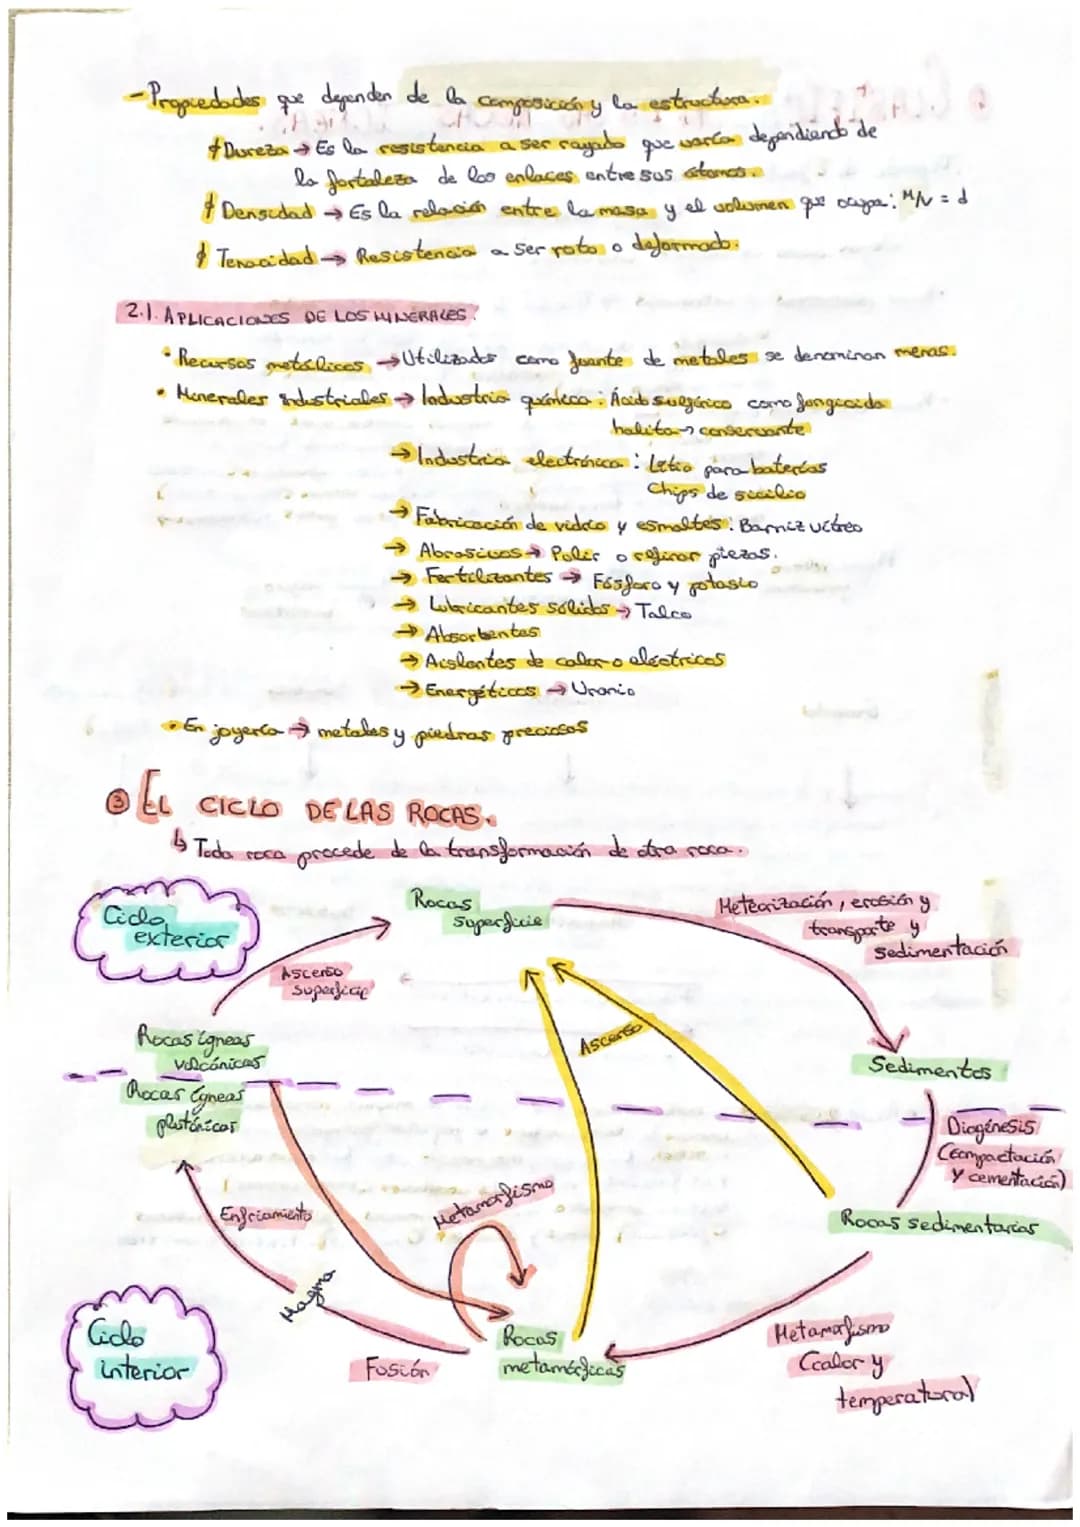 - Propiedades que dependen de la composición y la estructura.
Dureza → Es la resistencia a ser rayado que varía dependiendo de
la fortaleza de los enlaces entre sus átomos.
Densidad → Es la relación entre la masa y el volumen que ocupa: M/V = d
Tenacidad → Resistencia a ser roto o deformado.
2.1. APLICACIONES DE LOS MINERALES.
• Recursos metálicos → Utilizados como fuente de metales se denominan menas.
• Minerales industriales → Industria química: Ácido sulfúrico como fungicida
halita → conservante
→ Industria electrónica: Litio para baterías
Chips de silicio
→ Fabricación de vidrio y esmaltes: Barniz vítreo
→ Abrasivos → Polir o refinar piezas.
→ Fertilizantes → Fósforo y potasio
→ Lubricantes sólidos → Talco
→ Absorbentes
→ Aislantes de calor o eléctricos
→ Energéticos → Uranio
• En joyería → metales y piedras preciosas
③ EL CICLO DE LAS ROCAS.
↳ Toda roca procede de la transformación de otra roca.
Ciclo
exterior
Rocas
superficie
Meteorización, erosión y
transporte y
sedimentación
Ascenso
superficie
Ascenso
Rocas ígneas
volcánicas
Rocas ígneas
plutónicas
Sedimentos
Diagénesis
(compactación
y cementación)
Enfriamiento
Metamorfismo
Rocas sedimentarias
Magma
Ciclo
interior
Fusión
Rocas
metamórficas
Metamorfismo
(calor y
temperatura)